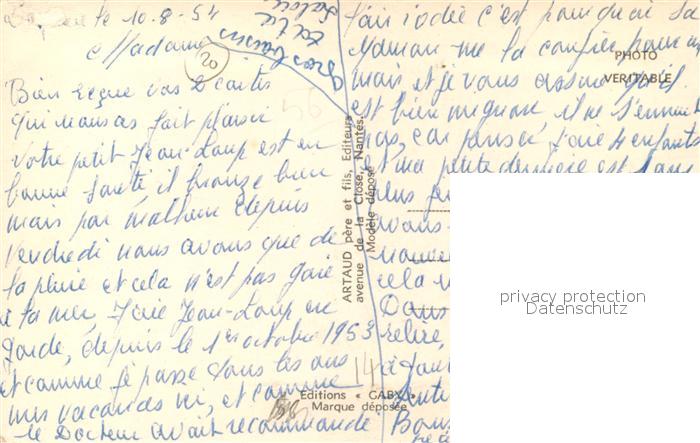 le 10-8-54
Madame
20
Bien reçue vos 2 cartes
qui nous as fait plaisir
votre petit Jean-Loup est en
bonne santé il bronze bien
mais par malheur depuis
vendredi nous avons que de
la pluie et cela n'est pas gaie
a la mer, J'aie Jean-Loup en
garde, depuis le 1er octobre 1953
et comme je passe tous les ans
mes vacances ici, et comme
le Docteur avait recommandé
Gros baisers
l'air iodée c'est pourquoi sa
Maman me la confier pour
mais et je vous assure qu'il
est bien mignon il ne s'ennuit
pas, car j'aie 4 enfants
et ma petite dernière est dans
avons
cela
Dans
relire,
14
PHOTO
VERITABLE
ARTAUD père et fils, Editeurs
avenue de la Close, Nantes.
Modèle déposé
Editions « GABY »
Marque déposée
privacy protection
Datenschutz